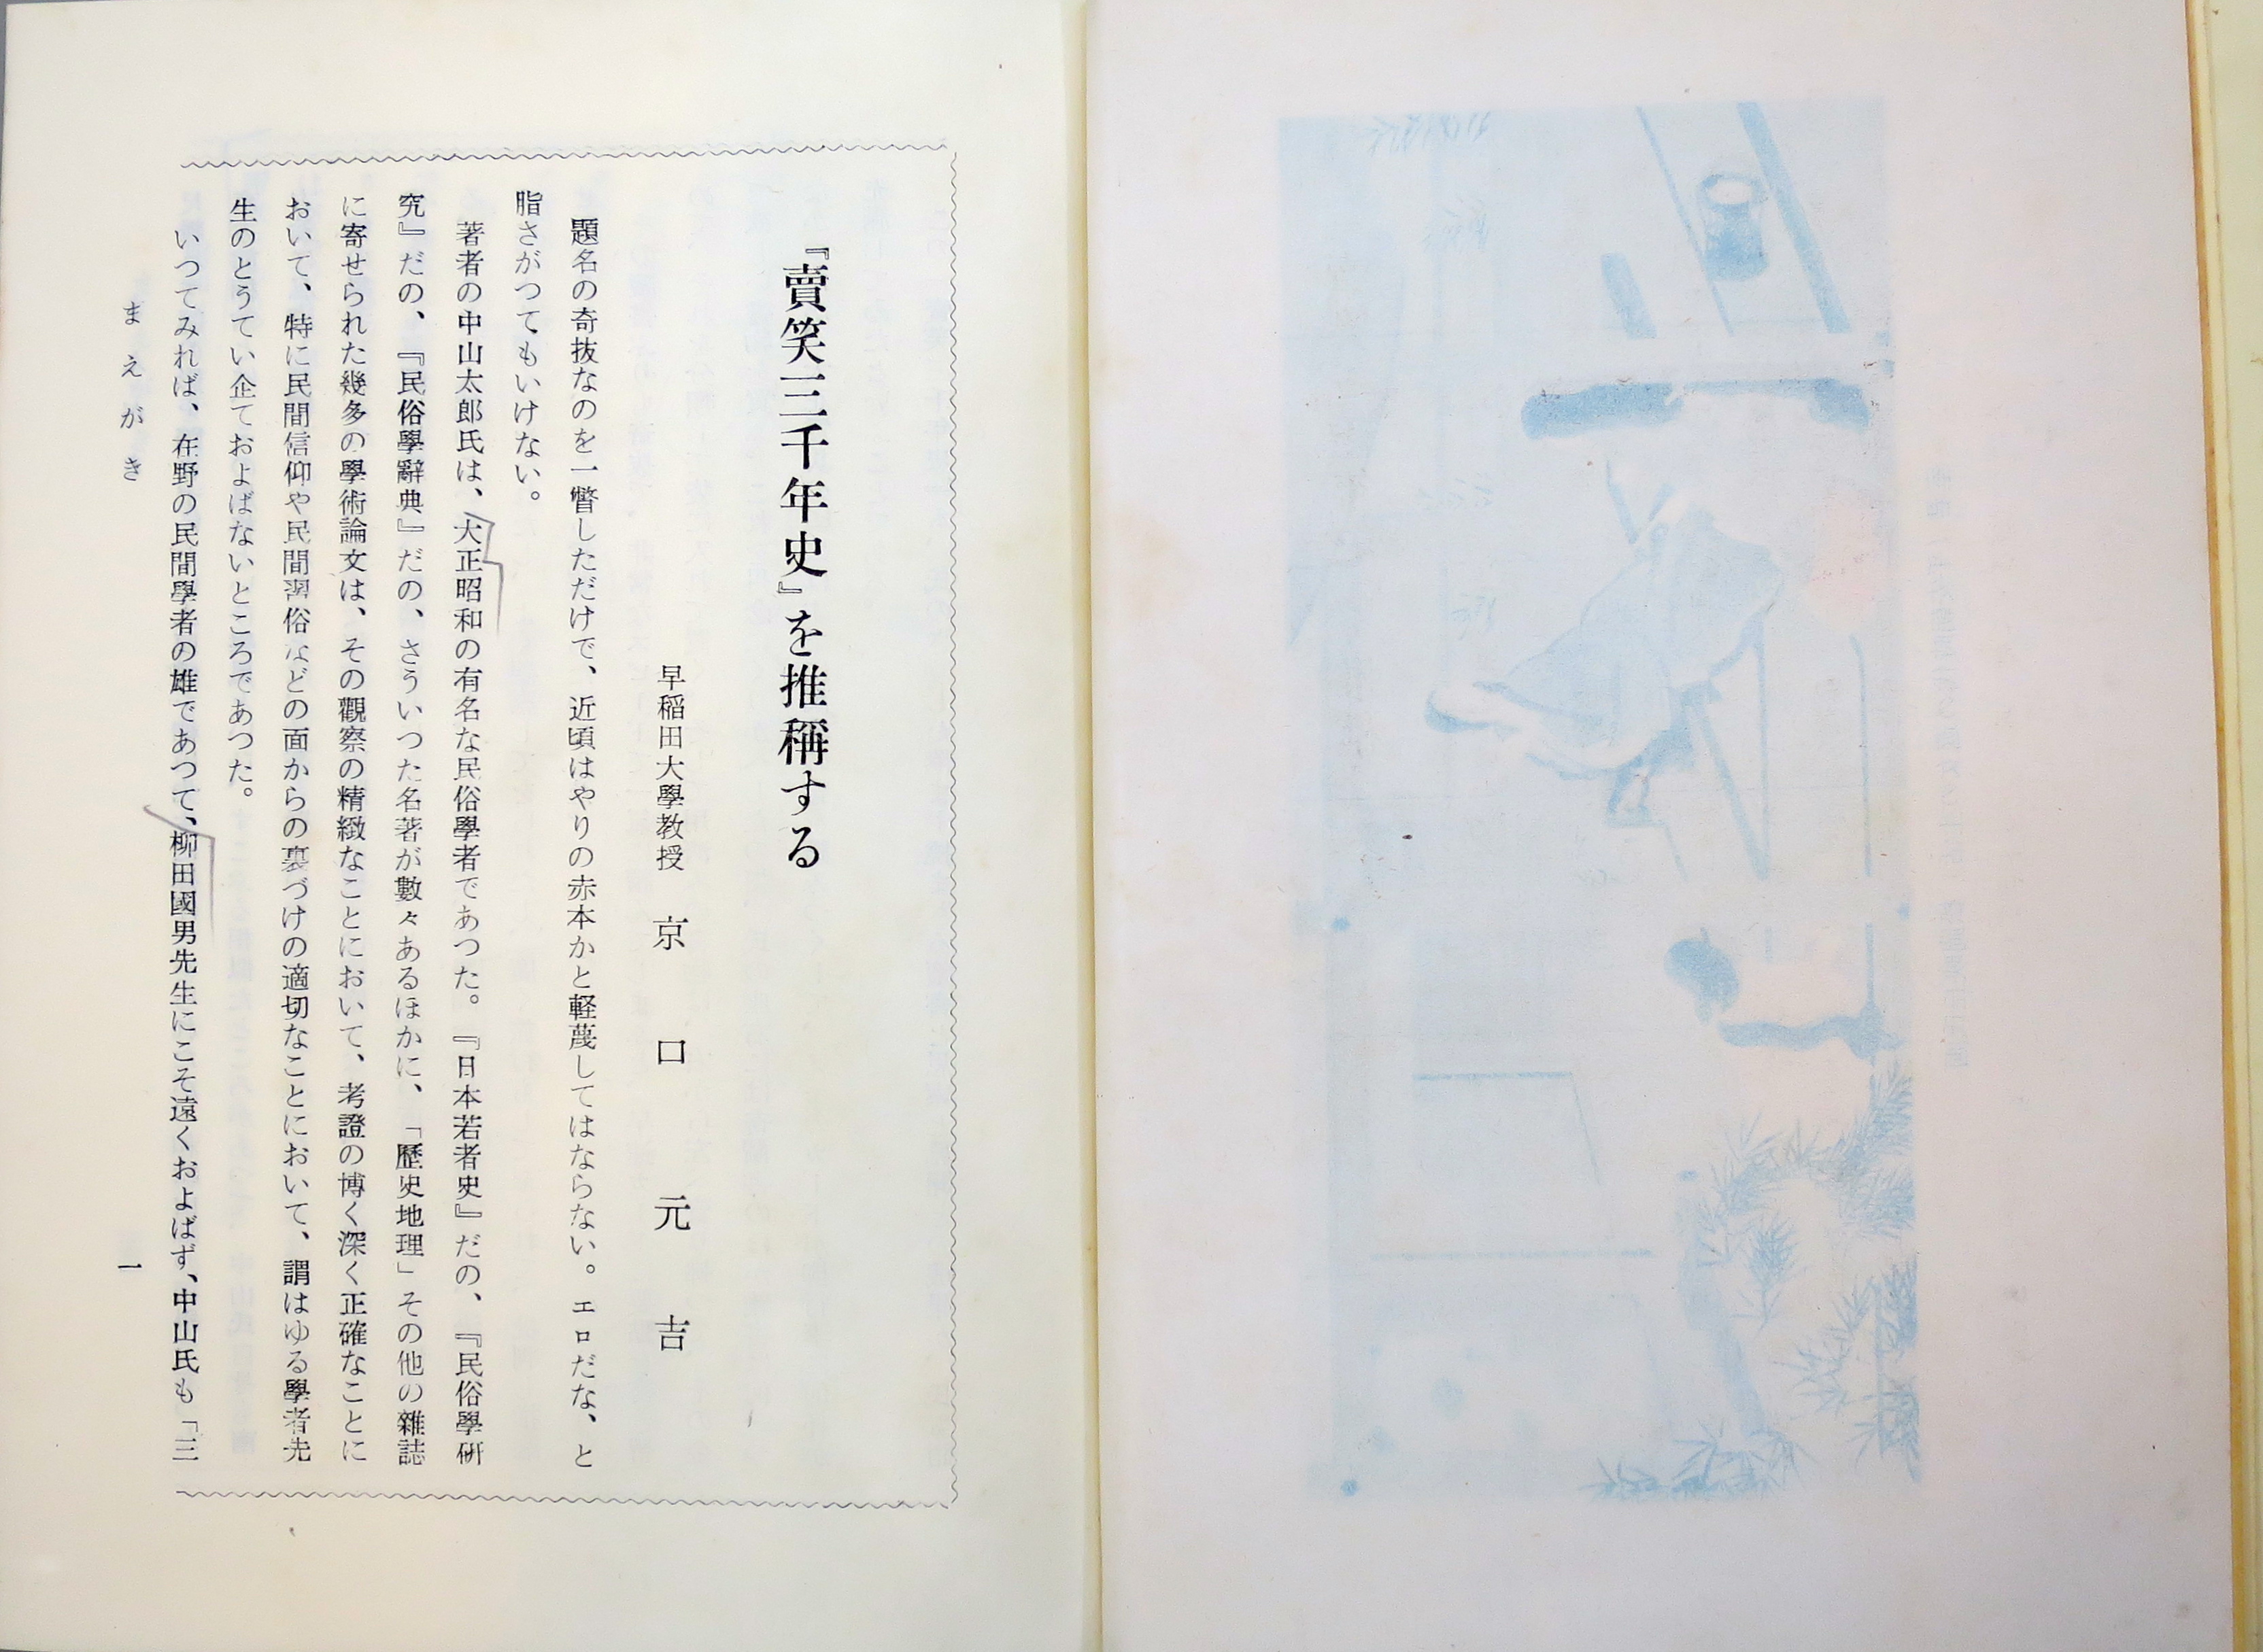 『賣笑三千年史』を推稱する
早稲田大學教授　京口元吉
題名の奇抜なのを一瞥しただけで、近頃はやりの赤本かと軽蔑してはならない。エロだな、と
脂さがつてもいけない。
著者の中山太郎氏は、大正昭和の有名な民俗學者であつた。『日本若者史』だの、『民俗學研
究』だの、『民俗學辭典』だの、さういつた名著が數々あるほかに、「歷史地理」その他の雜誌
に寄せられた幾多の學術論文は、その觀察の精緻なことにおいて、考證の博く深く正確なことに
おいて、特に民間信仰や民間習俗などの面からの裏づけの適切なことにおいて、謂はゆる學者先
生のとうてい企ておよばないところであつた。
いつてみれば、在野の民間學者の雄であつて、柳田國男先生にこそ遠くおよばず、中山氏も「三
まえがき
一